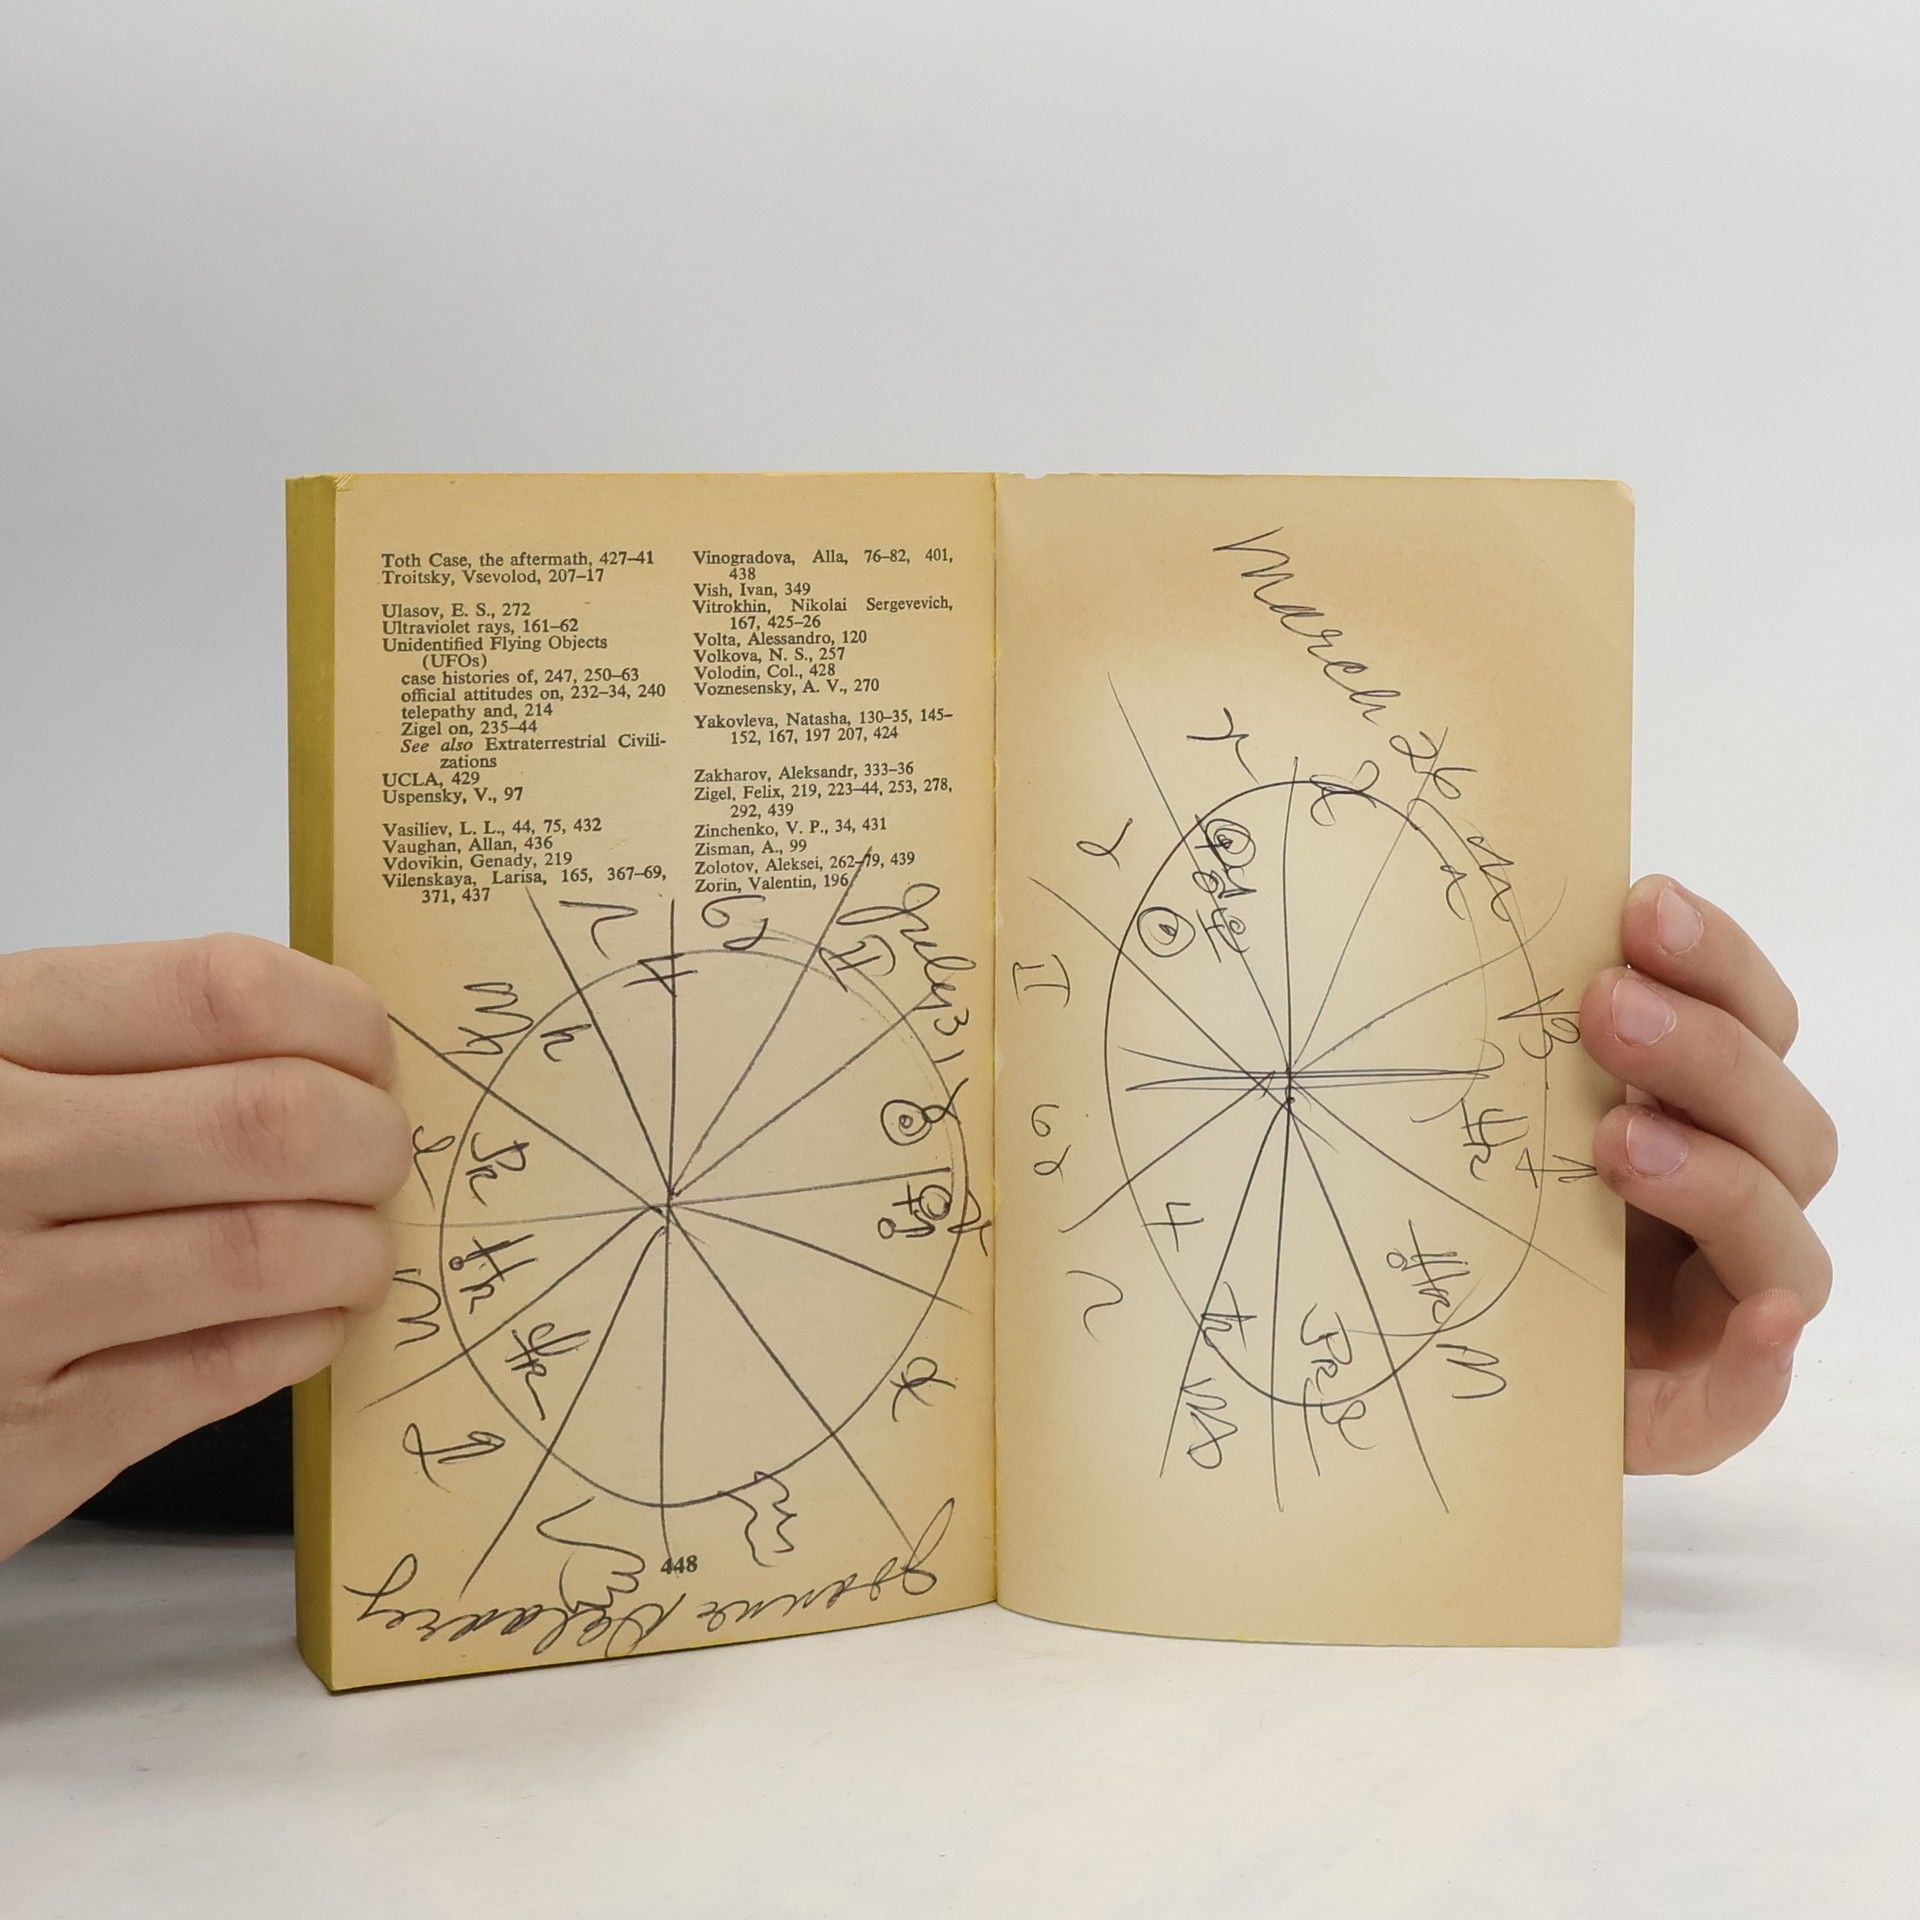 Toth Case, the aftermath, 427–41
Troitsky, Vsevolod, 207–17
Ulasov, E. S., 272
Ultraviolet rays, 161–62
Unidentified Flying Objects
(UFOs)
case histories of, 247, 250–63
official attitudes on, 232–34, 240
telepathy and, 214
Zigel on, 235–44
See also Extraterrestrial Civili-
zations
UCLA, 429
Uspensky, V., 97
Vasiliev, L. L., 44, 75, 432
Vaughan, Allan, 436
Vdovikin, Genady, 219
Vilenskaya, Larisa, 165, 367–69,
371, 437
Vinogradova, Alla, 76–82, 401,
438
Vish, Ivan, 349
Vitrokhin, Nikolai Sergevevich,
167, 425–26
Volta, Alessandro, 120
Volkova, N. S., 257
Volodin, Col., 428
Voznesensky, A. V., 270
Yakovleva, Natasha, 130–35, 145–
152, 167, 197 207, 424
Zakharov, Aleksandr, 333–36
Zigel, Felix, 219, 223–44, 253, 278,
292, 439
Zinchenko, V. P., 34, 431
Zisman, A., 99
Zolotov, Aleksei, 262–79, 439
Zorin, Valentin, 196
July 31
448
March 26